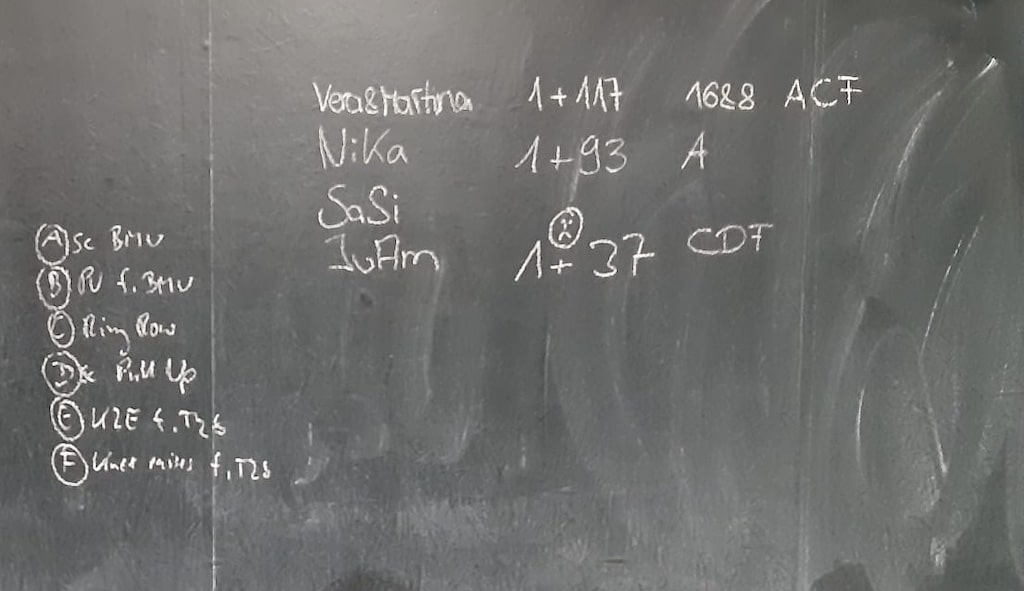 Vera&Martina 1+117 1688 ACF
NiKa 1+93 A
SaSi
JuAm 1+37 CDF
A Sc BMU
B PU f. BMU
C Ring Row
D Sc Pull Up
E K2E f. T2B
F Knee raises f. T2B